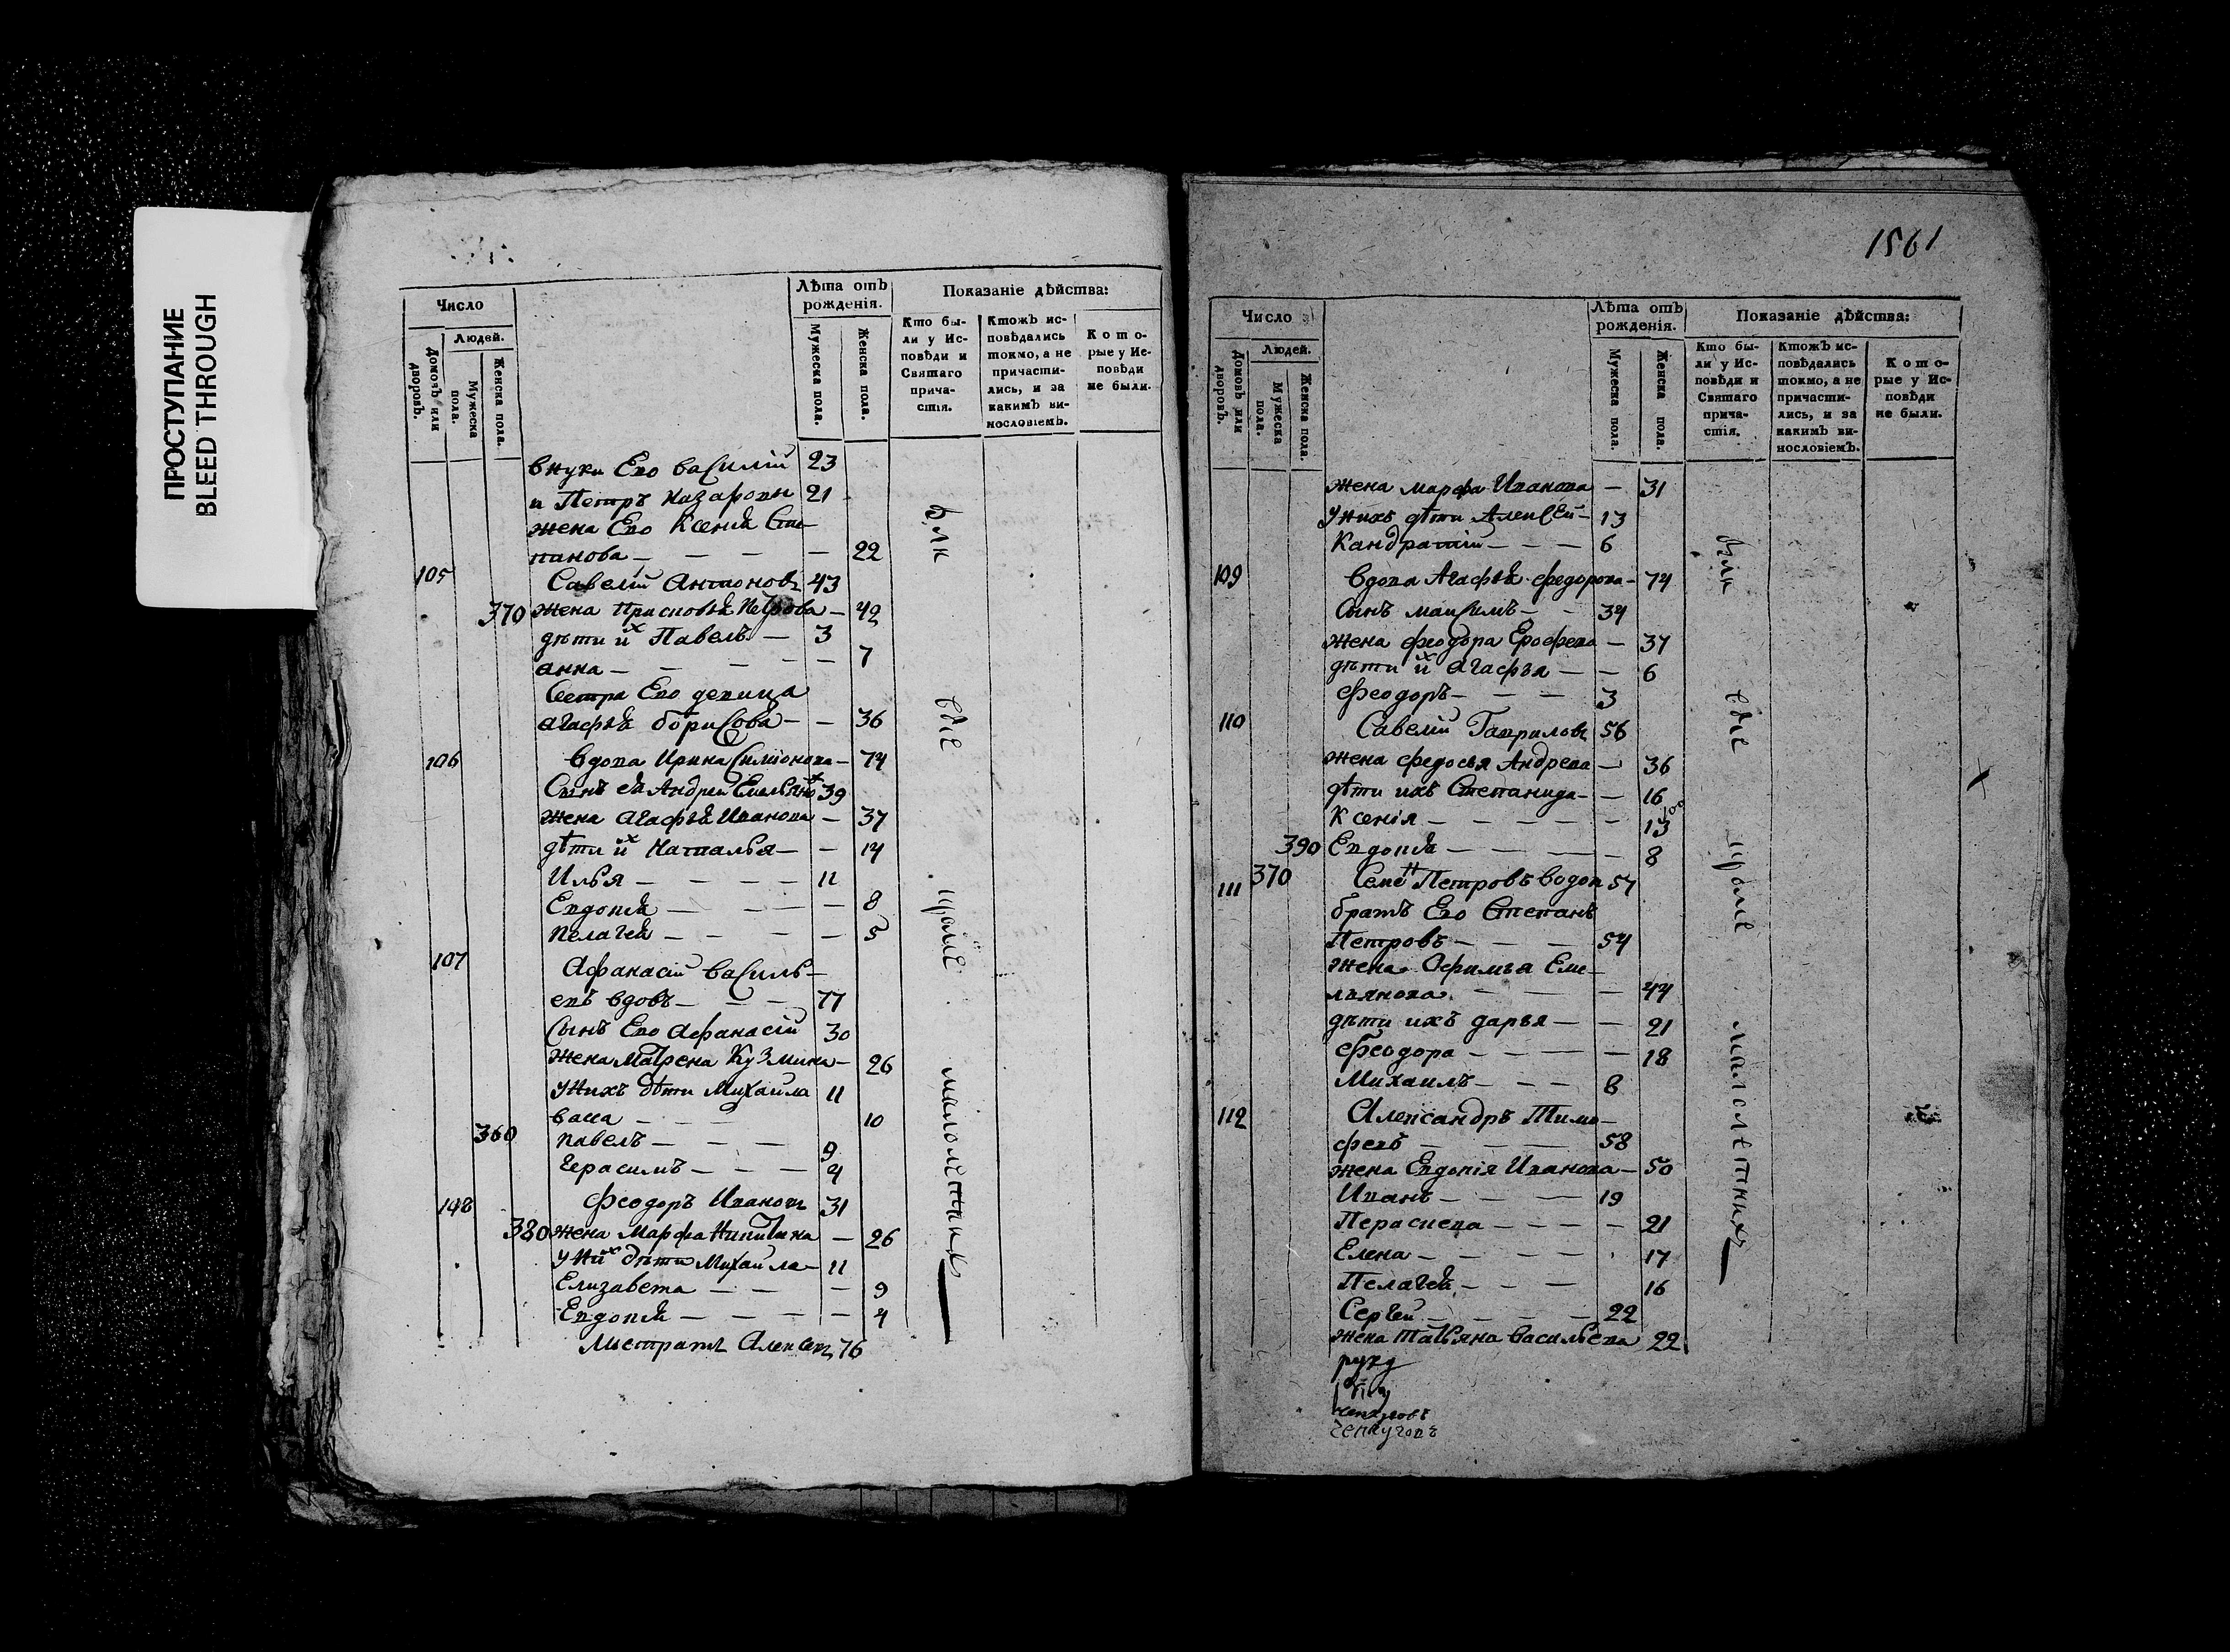 ПРОСТУПАНИЕ
BLEED THROUGH
Число
Людей.
Домовъ или дворовъ.
Мужеска пола.
Женска пола.
Лѣта отъ рожденія.
Мужеска пола.
Женска пола.
Показаніе дѣйства:
Кто были у Исповѣди и Святаго причастія.
Ктожъ исповѣдались токмо, а не причастились, и за какимъ винословіемъ.
Которые у Исповѣди не были.
внуки Его василій 23
и Петръ Назаровы 21
жена Его Ксенія Сте-
панова — — — — 22
105 Савелій Антоновъ 43
370 жена Прасковья Петрова — 42
дѣти их Павелъ — 3
анна — — — — 7
Сестра Его девица
агафья борисова — — 36
106 вдова Ирина Симіонова — 74
Сынъ ея Андрей Емельяно 39
жена Агафья Иванова — 37
дѣти их Наталья — — 14
Илья — — — — 11
Евдокія — — — — 8
пелагея — — — — 5
107 Афанасій василь-
евъ вдовъ — — — 77
Сынъ Его Афанасій 30
жена матрена Кузмина — 26
у нихъ дѣти Михаила 11
васса — — — 10
360 павелъ — — — 9
герасимъ — — — 4
108 Феодоръ Ивановъ 31
380 жена Марфа Никитина — 26
у них дѣти Михаила — 11
Елизавета — — — 9
Евдокія — — — — 4
Алексеевъ 76
вѣлк
всѣ
кромѣ
малолѣтнихъ
1561
Число
Людей.
Домовъ или дворовъ.
Мужеска пола.
Женска пола.
Лѣта отъ рожденія.
Мужеска пола.
Женска пола.
Показаніе дѣйства:
Кто были у Исповѣди и Святаго причастія.
Ктожъ исповѣдались токмо, а не причастились, и за какимъ винословіемъ.
Которые у Исповѣди не были.
жена марфа Иванова — 31
у нихъ дѣти Алексей — 13
Кандратій — — — 6
109 вдова Агафья федорова — 74
Сынъ максимъ — — 34
жена феодора Ерофеева — 37
дѣти их агафья — — 6
Феодоръ — — — 3
110 Савелій Гавриловъ 56
жена федосья Андреева — 36
дѣти ихъ Степанида — — 16
Ксенія — — — — — 13
390 Евдокія — — — — 8
111 370 Семен Петровъ вдов 57
братъ Его Степанъ
Петровъ — — — 54
жена Афимья Еме-
льянова — — — 44
дѣти ихъ дарья — — 21
Феодора — — — — 18
Михаилъ — — — 8
112 Александръ Тимо-
феевъ — — — 58
жена Евдокія Иванова — 50
Иванъ — — — 19
Пераскева — — — — 21
Елена — — — — 17
Пелагея — — — 16
Сергей — — — — 22
жена татьяна васильева 22
вѣлк
всѣ
кромѣ
малолѣтнихъ